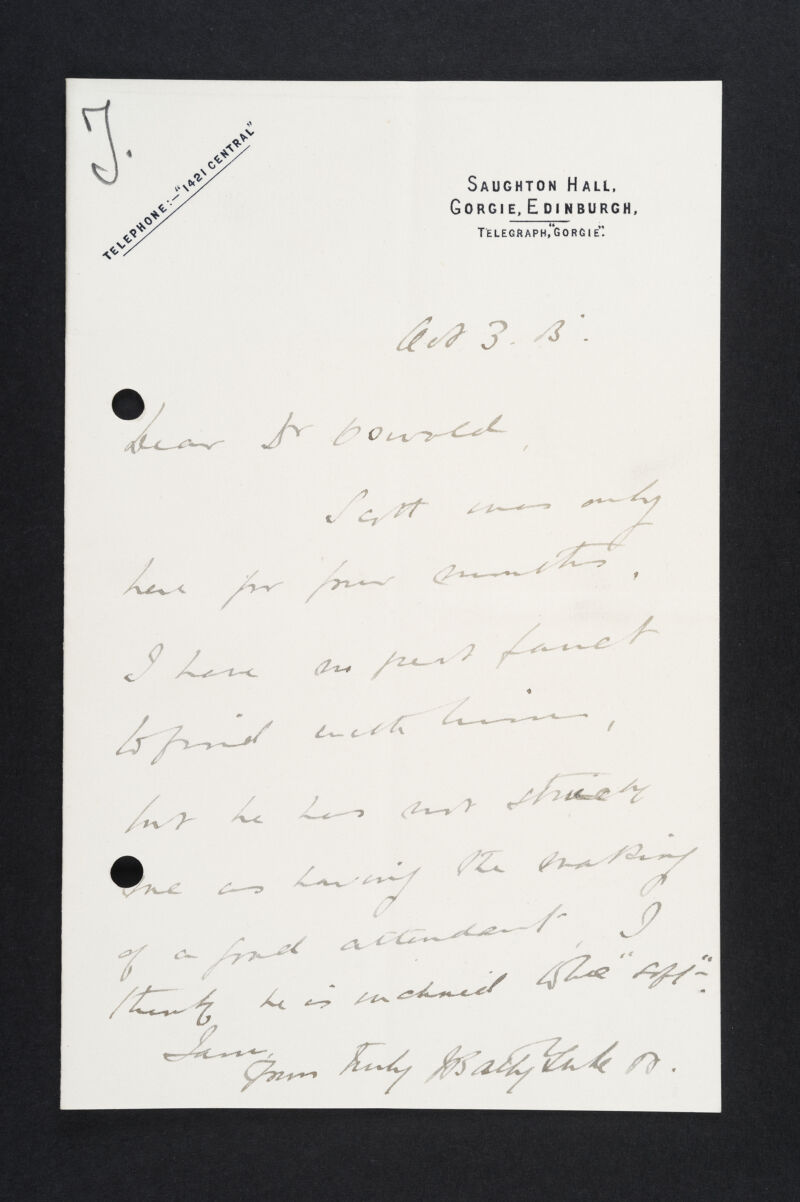 J.
TELEPHONE:—"1421 CENTRAL"
SAUGHTON HALL,
GORGIE, EDINBURGH,
TELEGRAPH, "GORGIE".
Oct 3. 13.
Dear Dr Oswald,
Scott was only
here for four months.
I have no fault
to find with him,
but he has not struck
me as having the making
of a good attendant, I
think he is inclined to be "soft".
I am,
yours truly J Batty Tuke